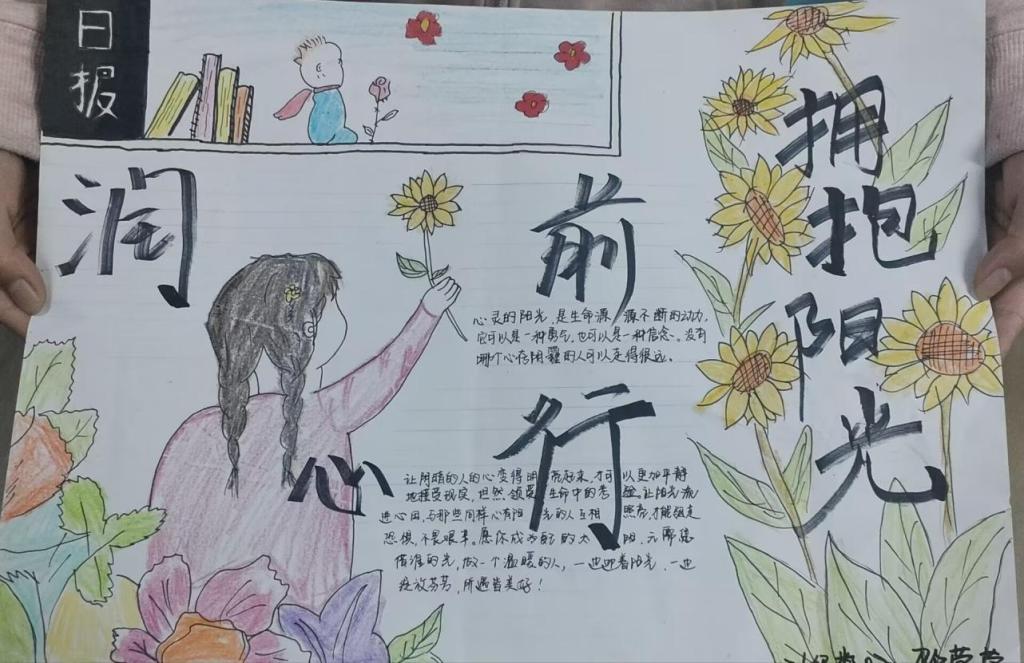 日报
拥抱阳光
润心
前行
心灵的阳光，是生命源源不断的动力，
它可以是一种勇气，也可以是一种信念。没有
哪个心存阴霾的人可以走得很远。
让阴暗的人的心变得明亮起来，才可以更加平静
地接受现实，坦然领受生命中的考验。让阳光流
进心田，与那些同样心有阳光的人互相照亮，才能
恐惧，不畏艰辛。愿你成为自己的太阳，无需凭
借谁的光，做一个温暖的人，一边迎着阳光，一边
绽放芬芳，所遇皆美好！